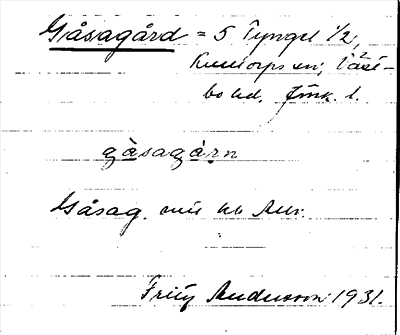 Gåsagård = 5 Tyngel 1/2,
Kulltorps sn; Väst-
bo hd. Jönk. l.
gàsagàrn
Gåsag. enl. kb Anv.
Fritz Andersson 1931.